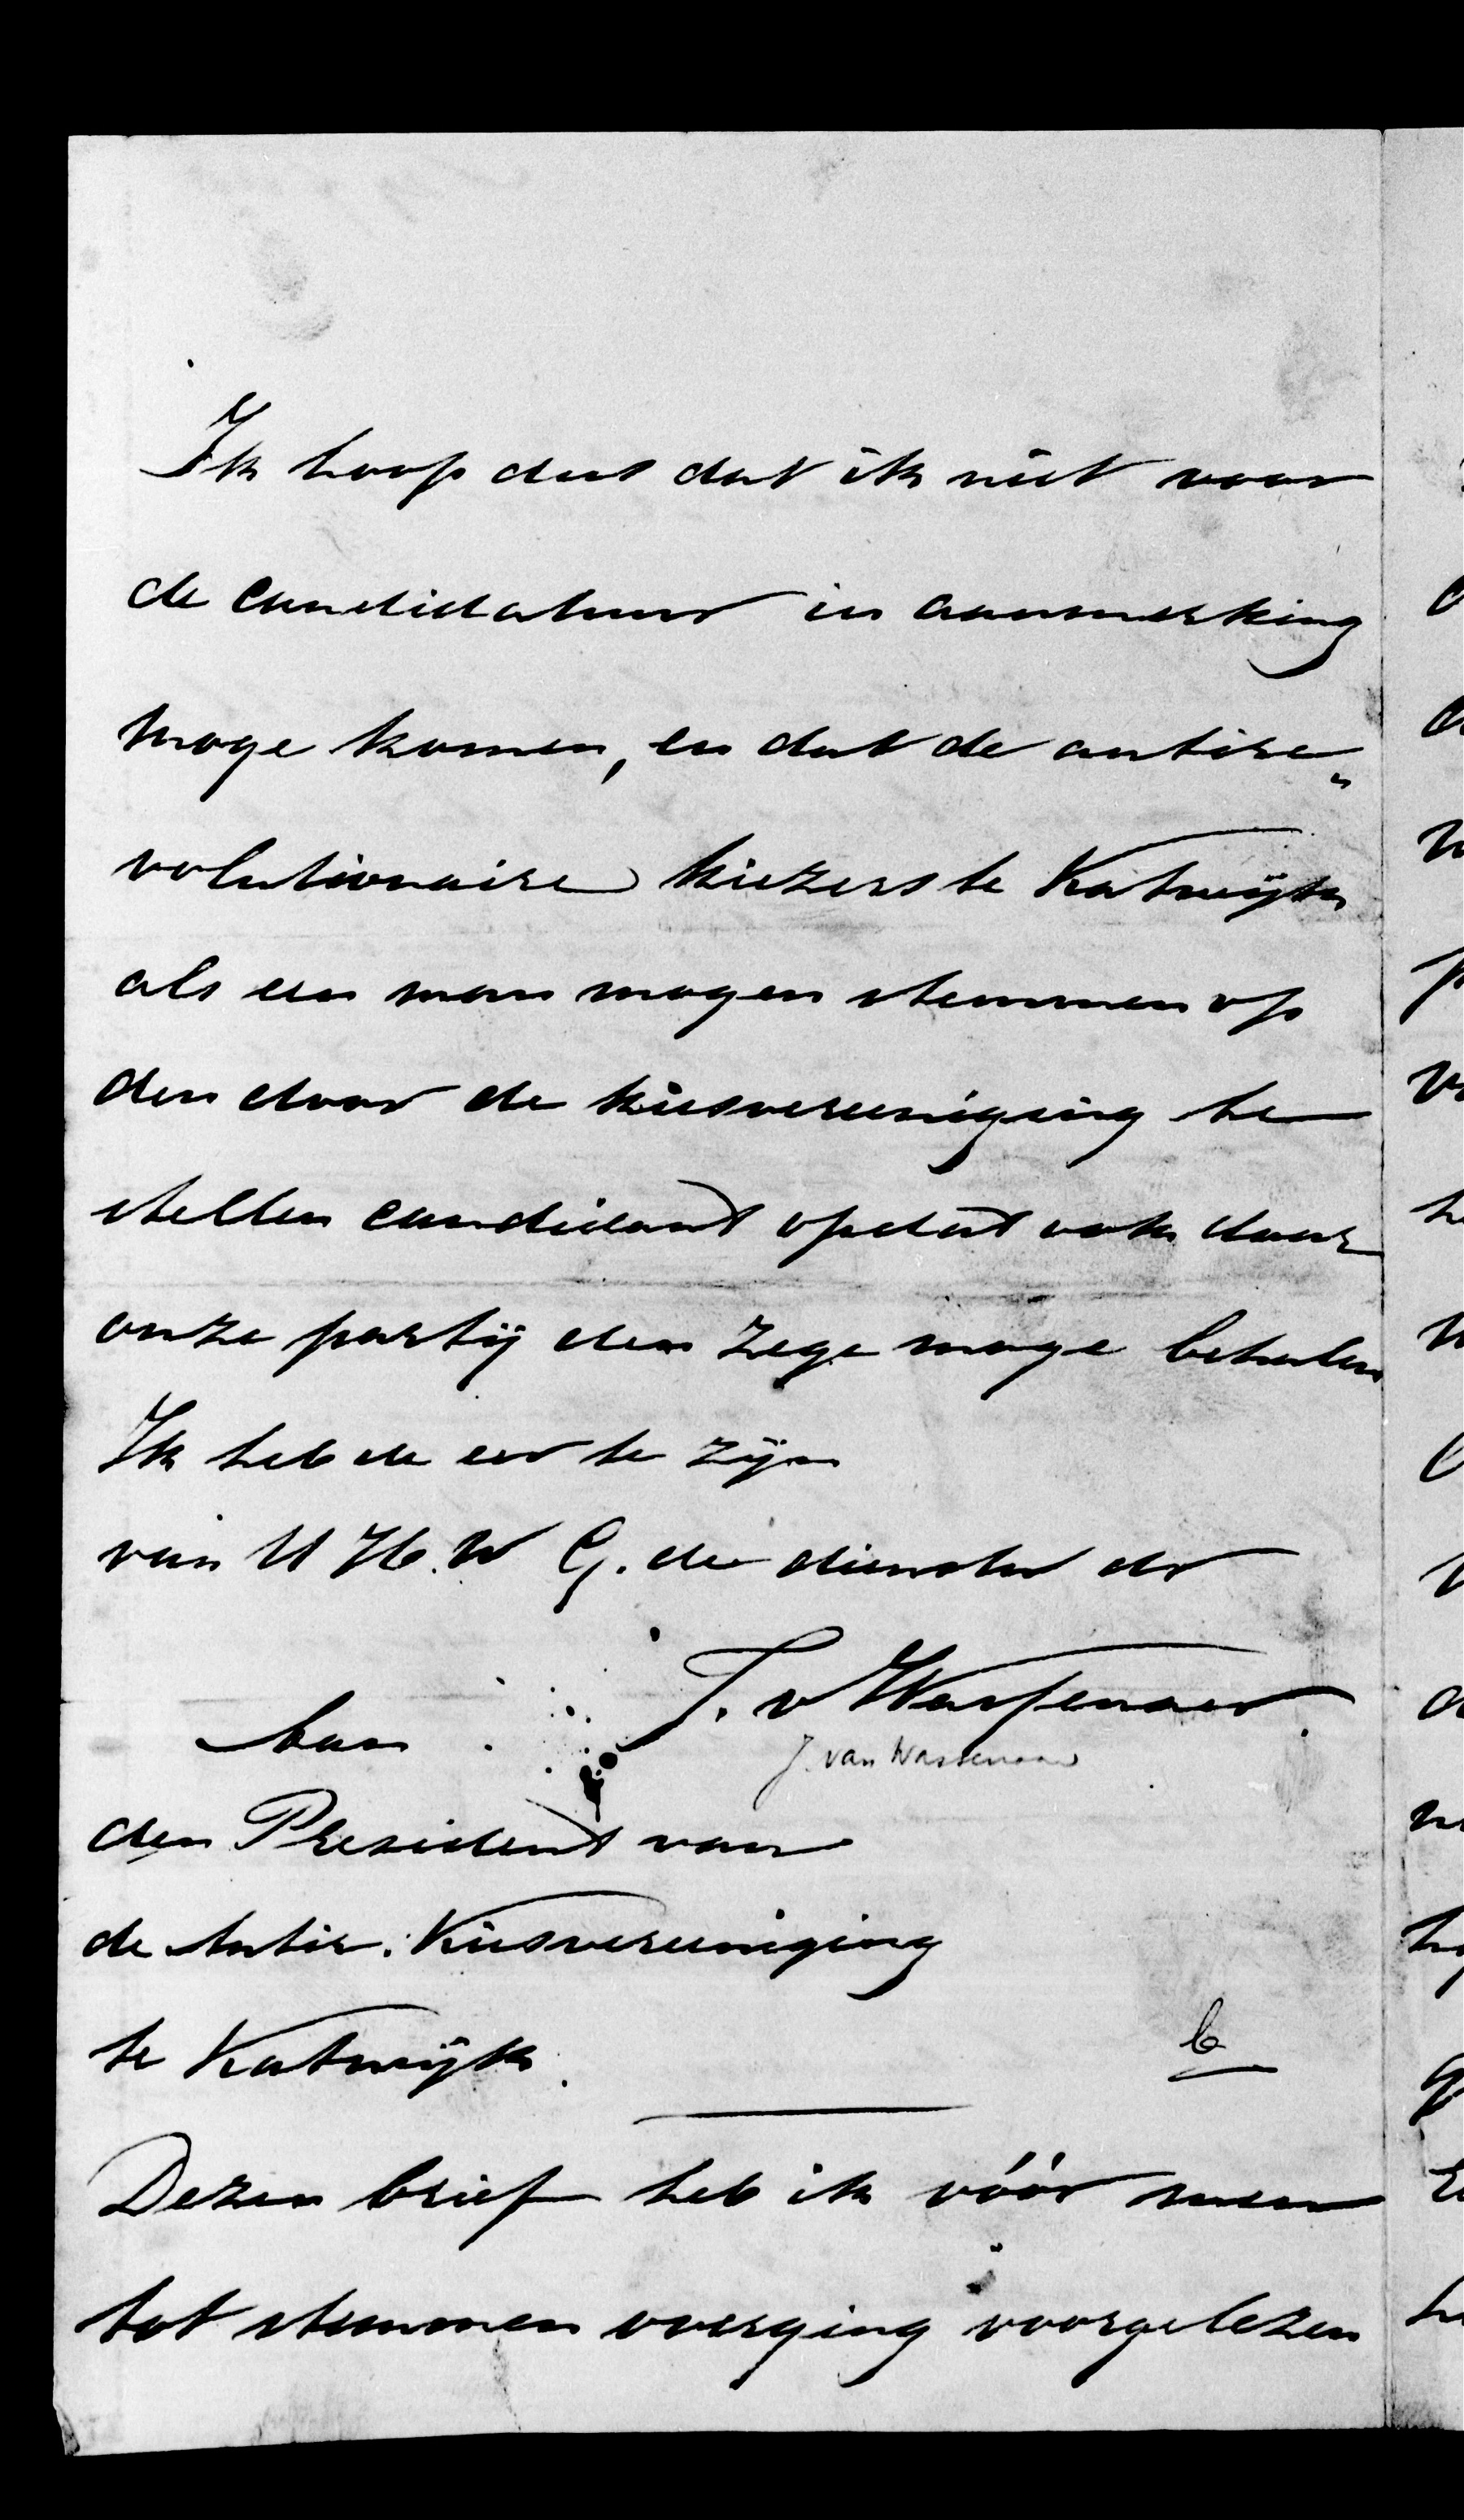 Ik hoop dus dat ik niet voor
de candidatuur in aanmerking
moge komen, en dat de antire„
volutionaire kiezers te Katwijk
als een man mogen stemmen op
den door de kiesvereeniging te
stellen candidaat opdat ook daar
onze partij den zege moge behalen
Ik heb de eer te zijn
van U H.W G. de dienstw dr
J. v Wassenaer
J. van Wassenaer
Aan
den President van
de Antir. Kiesvereeniging
te Katwijk.
b
Dezen brief heb ik vóór men
tot stemmen overging voorgelezen